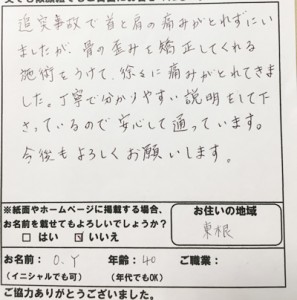 追突事故で首と肩の痛みがとれずにい
ましたが、骨の歪みを矯正してくれる
施術をうけて、徐々に痛みがとれてきまし
た。丁寧で分かりやすい説明をして下
さっているので安心して通っています。
今後もよろしくお願いします。
※紙面やホームページに掲載する場合、
お名前を載せてもよろしいでしょうか?
□ はい ☑ いいえ
お住いの地域
東根
お名前: O.Y 年齢: 40 ご職業:
(イニシャルでも可) (年代でもOK)
ご協力ありがとうございました。